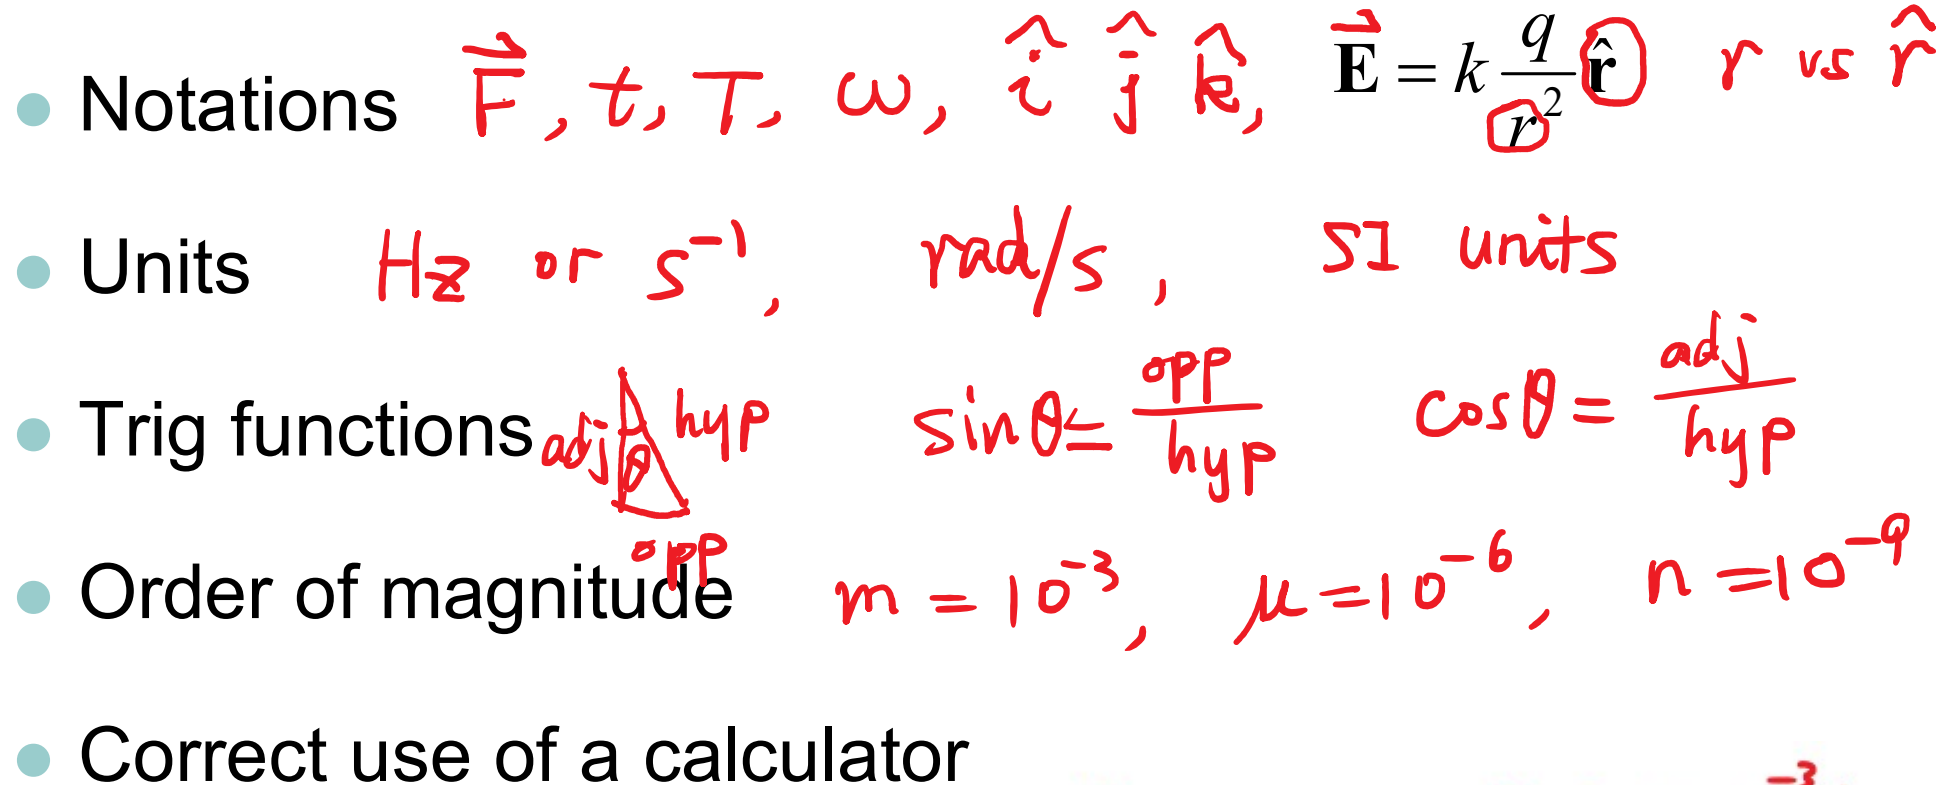 • Notations F⃗, t, T, ω, î ĵ k̂, E⃗ = k q/r² r̂ r vs r̂
• Units Hz or s⁻¹, rad/s, SI units
• Trig functions adj θ hyp opp sinθ = opp/hyp cosθ = adj/hyp
• Order of magnitude m = 10⁻³, μ = 10⁻⁶, n = 10⁻⁹
• Correct use of a calculator